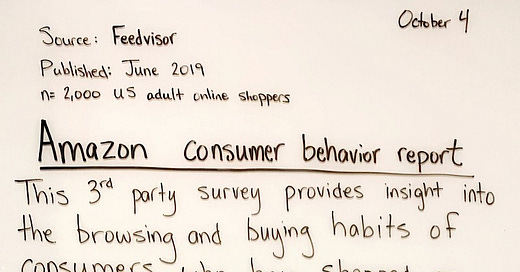 October 4
Source: Feedvisor
Published: June 2019
n= 2,000 US adult online shoppers
Amazon consumer behavior report
This 3rd party survey provides insight into
the browsing and buying habits of
consumers who have shopped